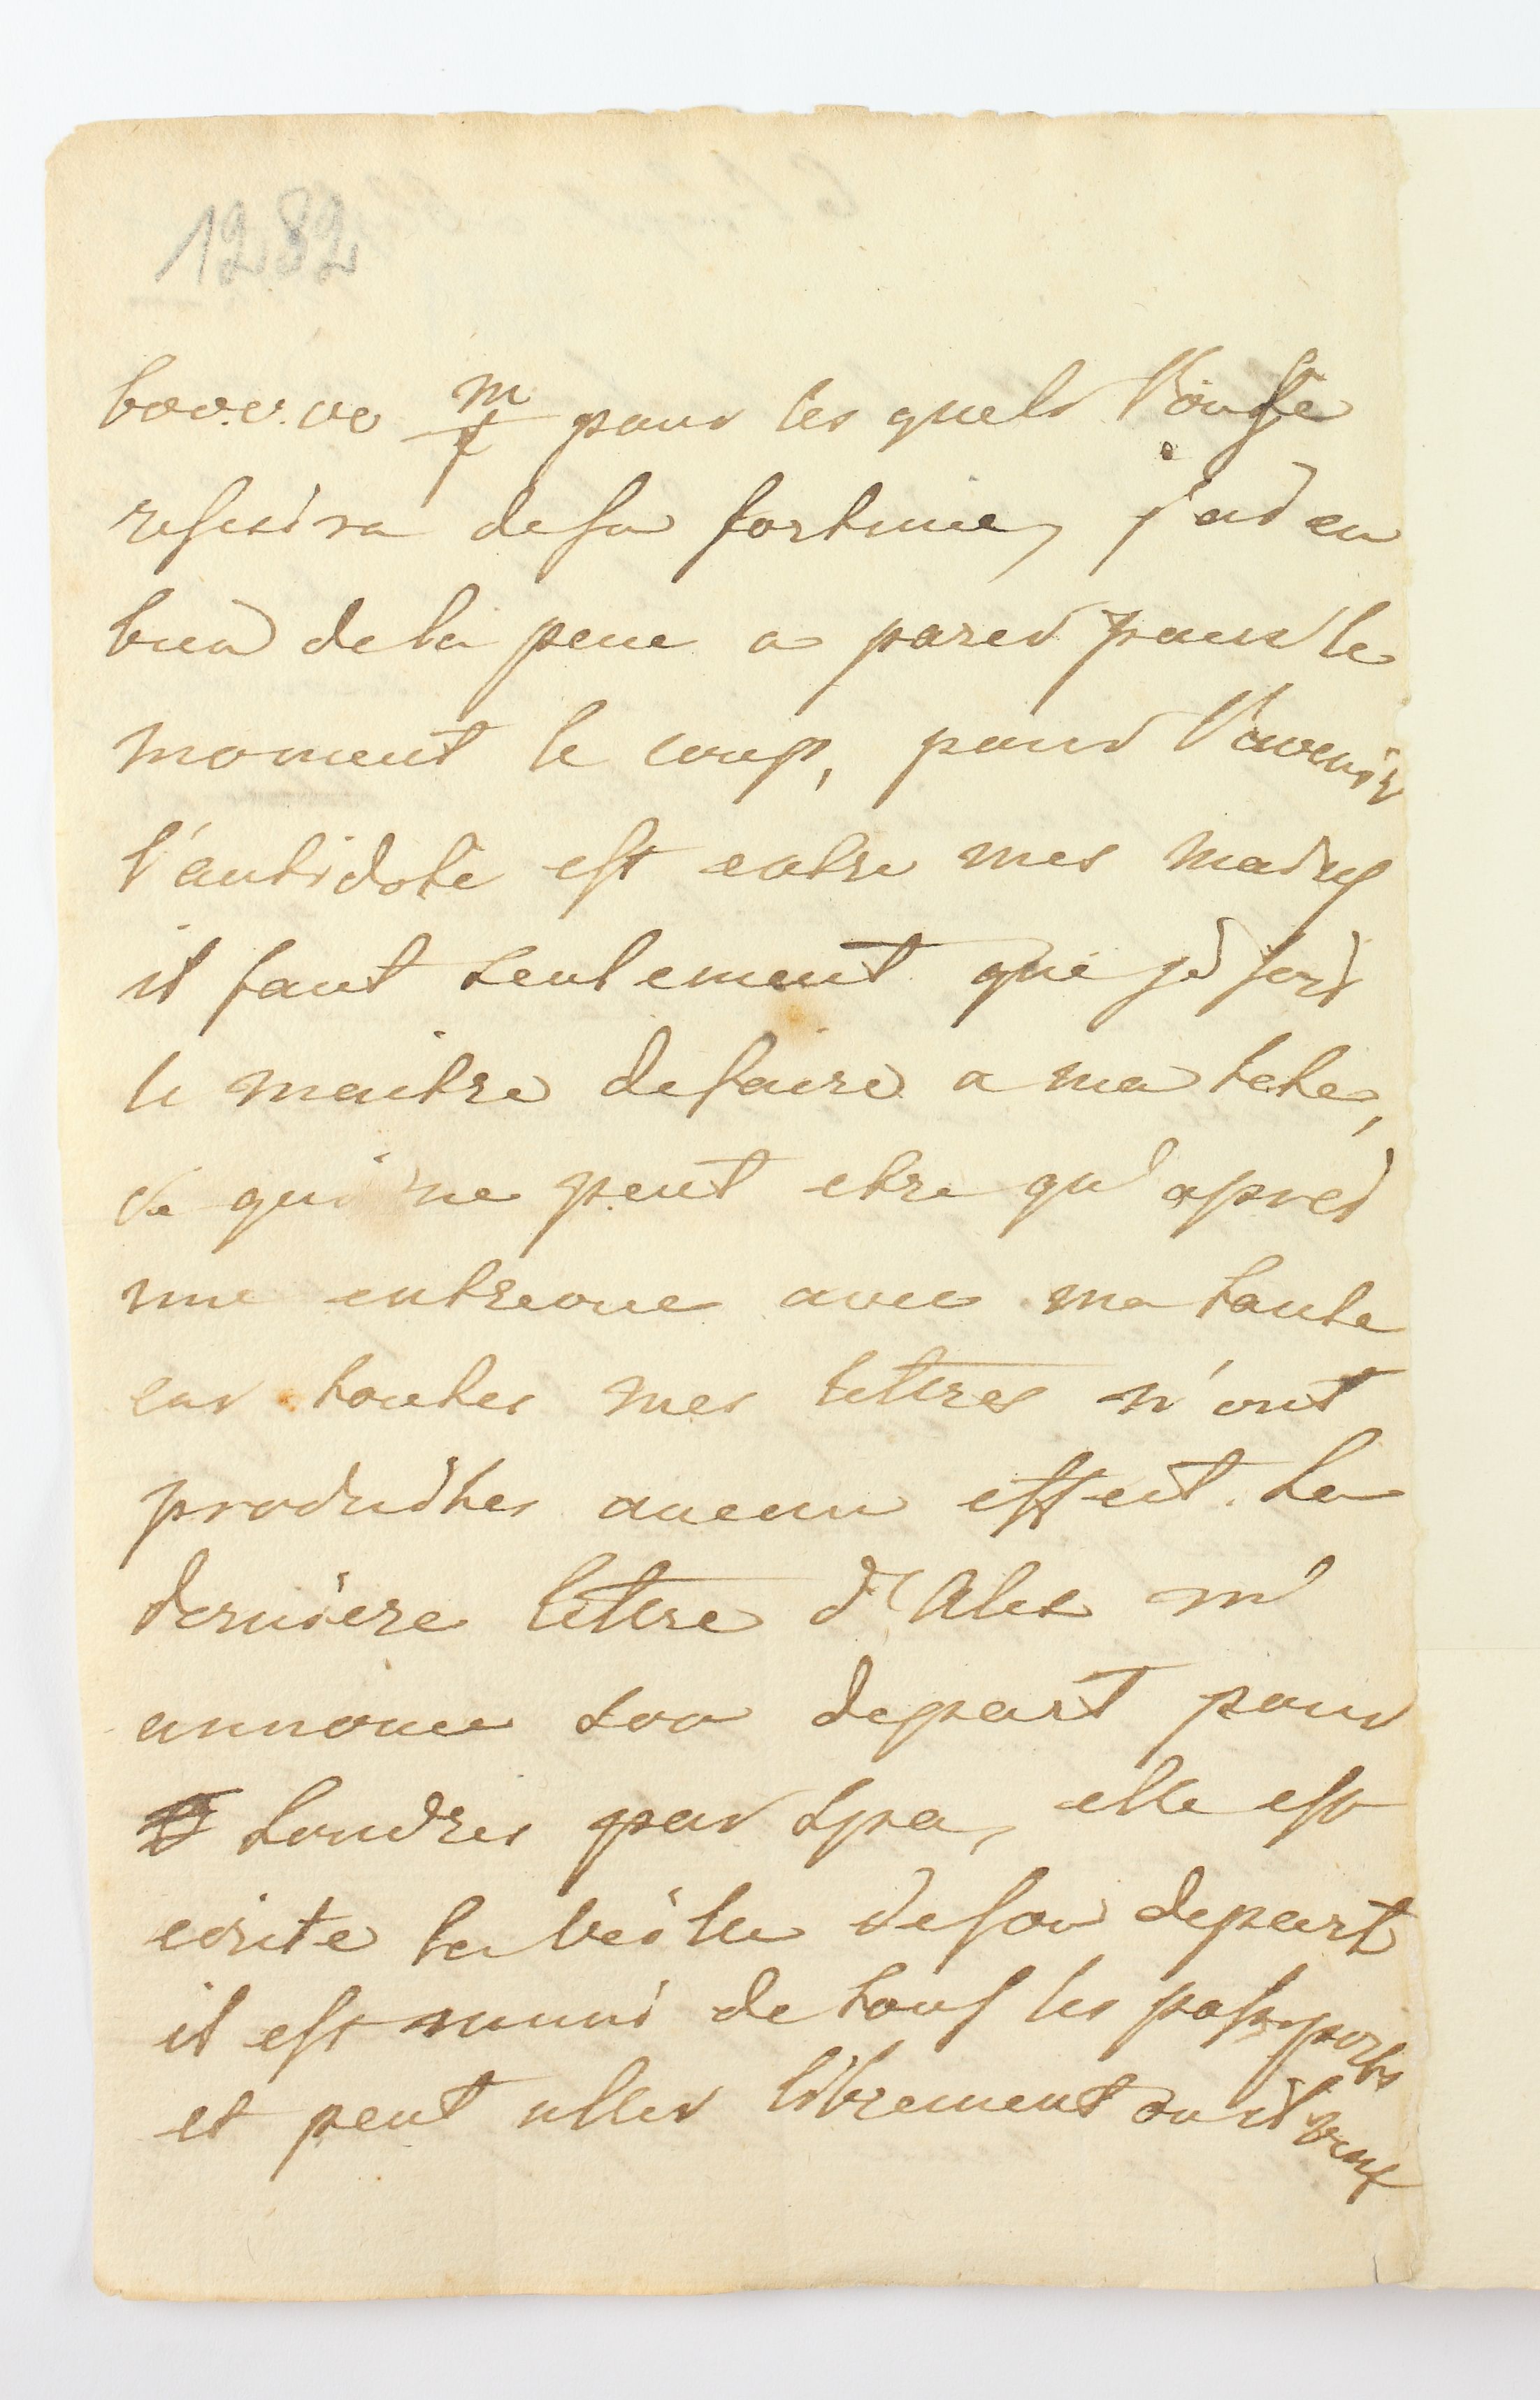 1282
pour les quels
de sa fortune, j'ai eu
bien de la peine a parer pour le
moment le coup, pour l'avenir
l'antidote est entre mes mains
il faut seulement que je sois
le maitre de faire a ma tete,
ce qui ne peut etre qu'apres
une entrevue avec ma tante
car toutes mes lettres n'ont
produites aucun effet. La
derniere lettre d'Alex m'
annonce son depart pour
Londres par Spa, elle est
ecrite la veille de son depart
il est muni de tous les passports
et peut aller librement ou il veut